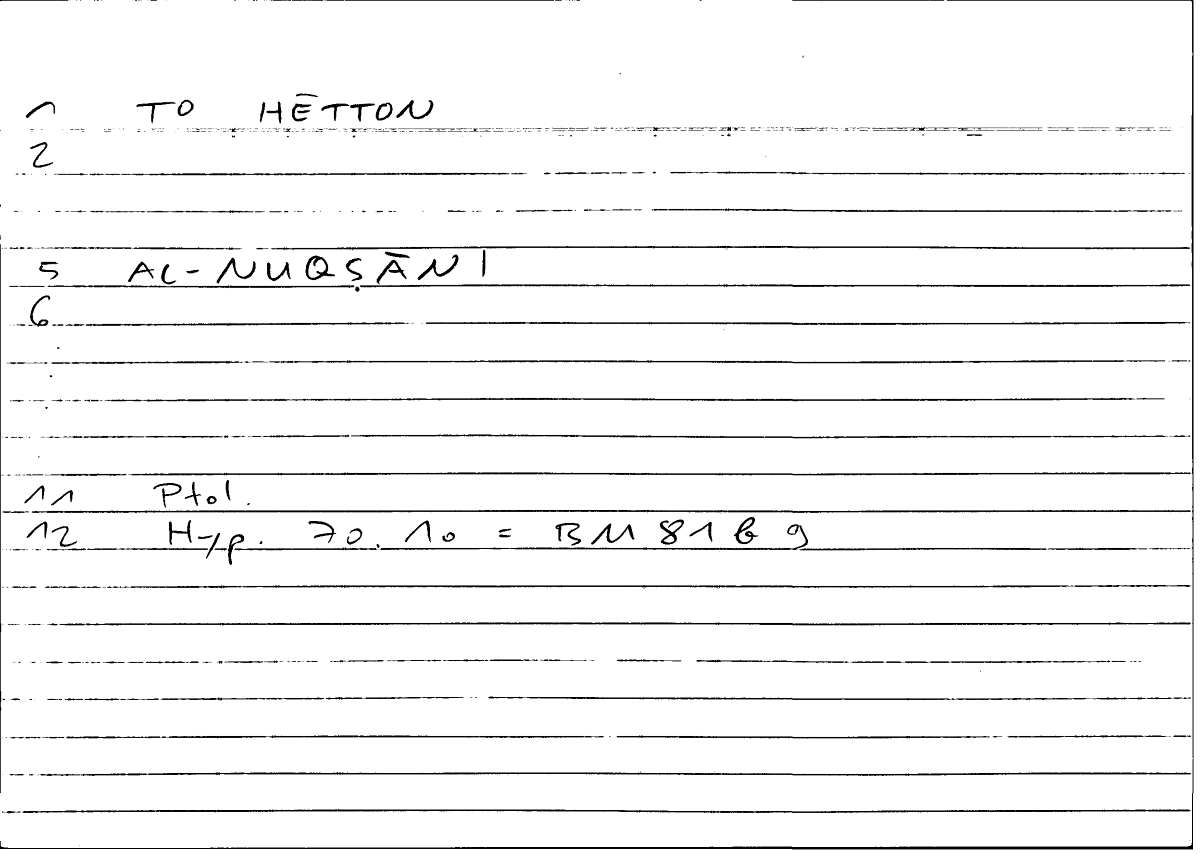 1 TO HĒTTON
2
5 AL-NUQṢĀNI
6
11 Ptol.
12 Hyp. 70.10 = BM 81 b 9